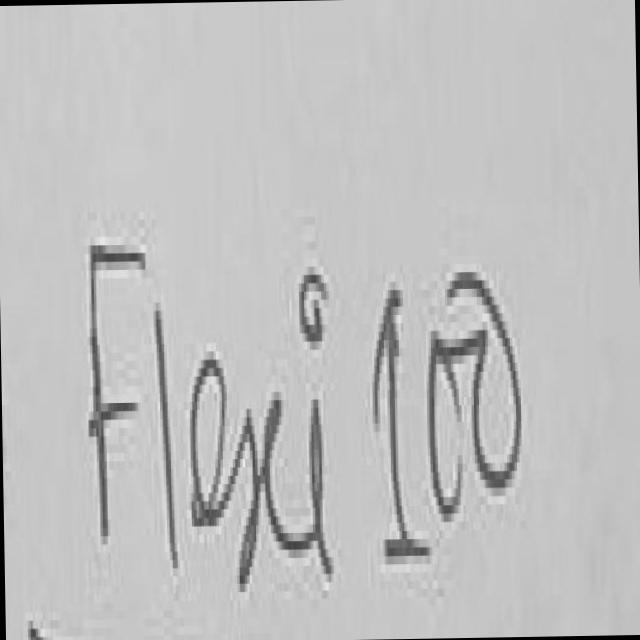 Flexi 100